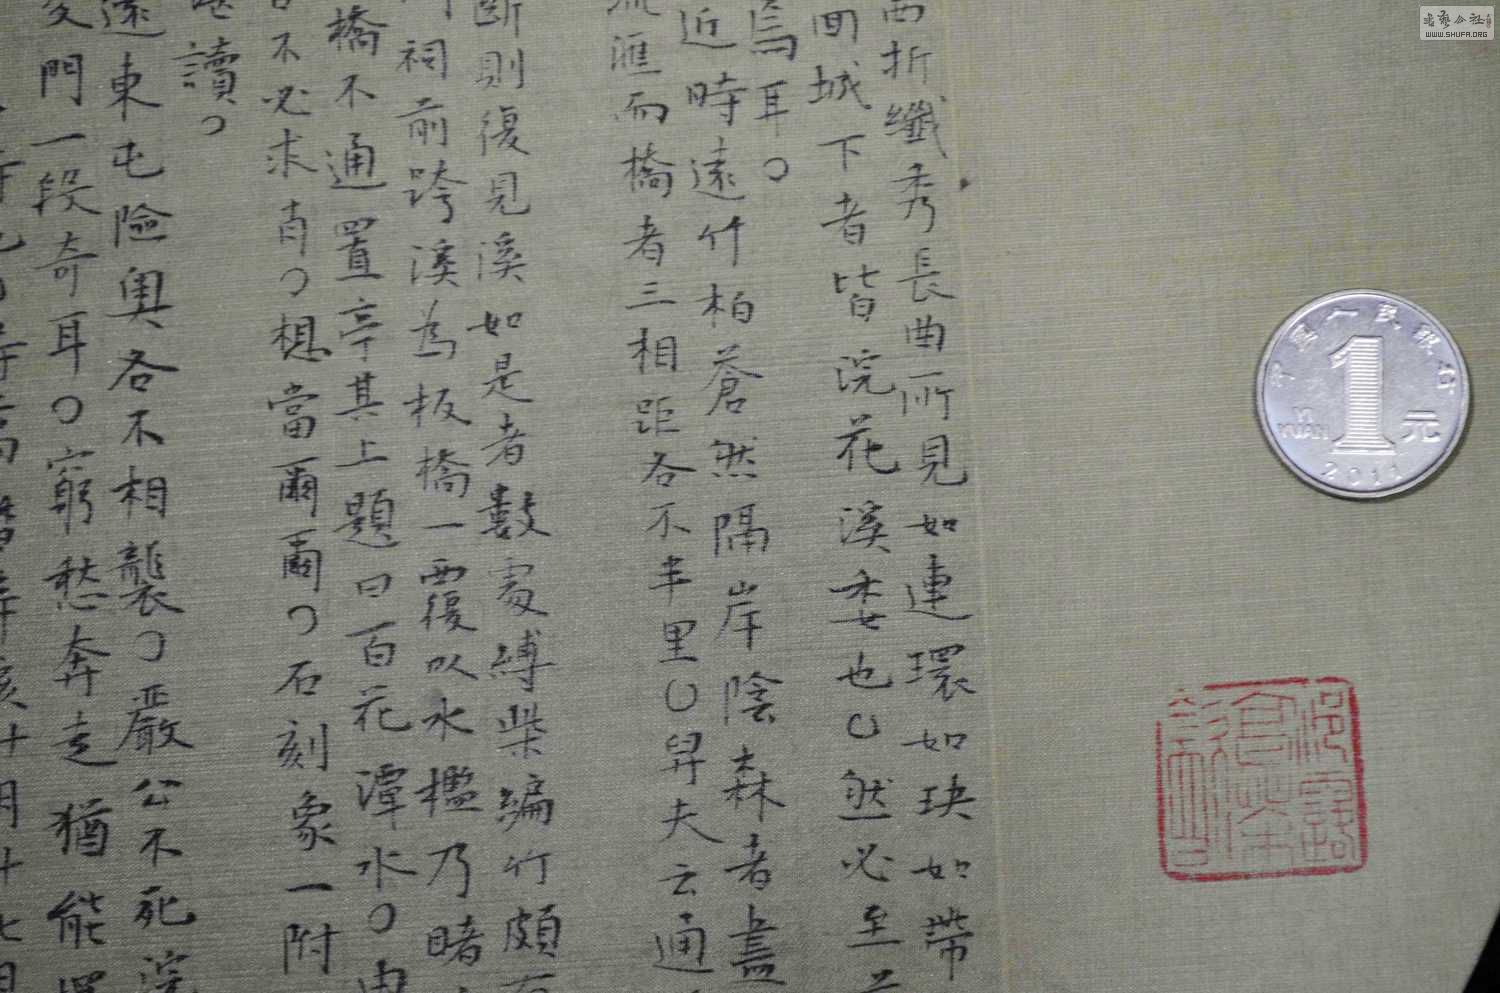 西折纖秀長曲所見如連環如玦如帶
回城下者皆浣花溪委也然必至
焉耳
近時遠竹柏蒼然隔岸陰森者盡
流匯而橋者三相距各不半里舁夫云通
斷則復見溪如是者數處縛柴編竹頗
祠前跨溪為板橋一覆以水檻乃睹
橋不通置亭其上題曰百花潭水由
不必求肖想當爾爾石刻象一附
讀
遠東屯險奧各不相襲嚴公不死浣
夔門一段奇耳窮愁奔走猶能
中國人民銀行
1
YI YUAN
元
2011
書藝公社
WWW.SHUFA.ORG